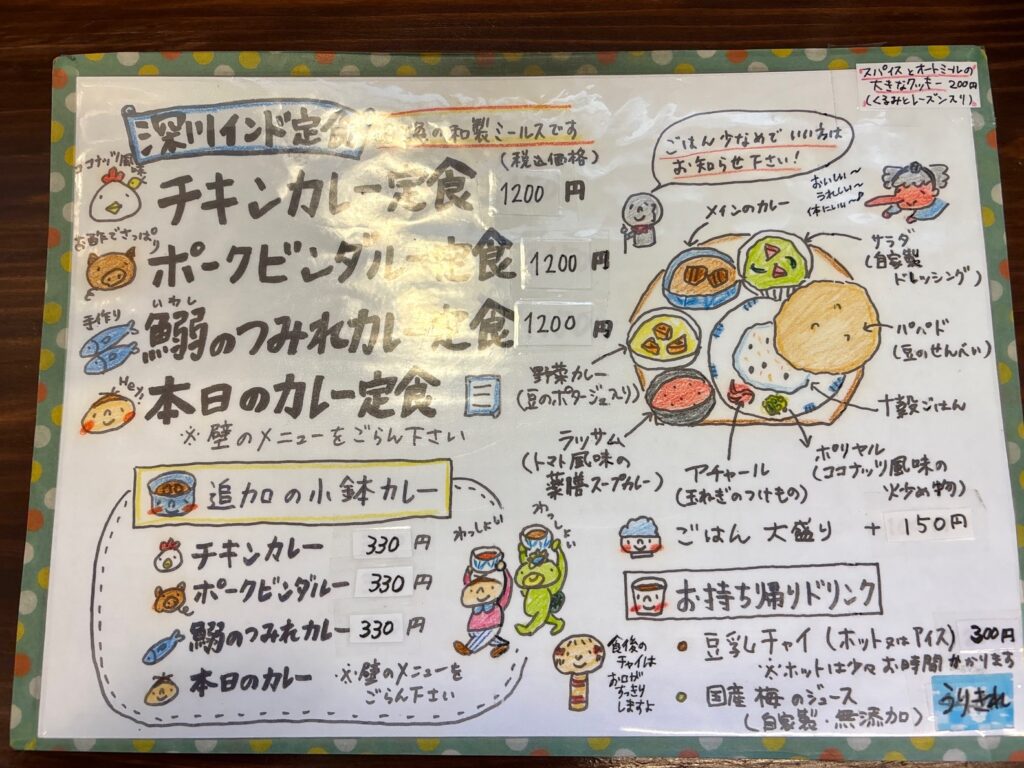 深川インド定食
の和製ミールスです
(税込価格)
ココナッツ風味
チキンカレー定食 1200 円
お酢でさっぱり
ポークビンダルー定食 1200 円
いわし
手作り
鰯のつみれカレー定食 1200 円
Hey!
本日のカレー定食
※壁のメニューをごらん下さい
追加の小鉢カレー
チキンカレー 330 円
ポークビンダルー 330 円
鰯のつみれカレー 330 円
本日のカレー ※壁のメニューを
ごらん下さい
わっしょい
わっしょい
スパイスとオートミールの
大きなクッキー 200円
(くるみとレーズン入り)
ごはん少なめでいい方は
お知らせ下さい!
おいしい〜
うれしい〜
体にいい〜
メインのカレー
サラダ
(自家製
ドレッシング)
パパド
(豆のせんべい)
十穀ごはん
野菜カレー
(豆のポタージュ入り)
ラッサム
(トマト風味の
薬膳スープカレー)
アチャール
(玉ねぎのつけもの)
ポリヤル
(ココナッツ風味の
炒め物)
ごはん 大盛り + 150円
お持ち帰りドリンク
豆乳チャイ (ホット又はアイス) 300円
※ホットは少々お時間かかります
国産梅のジュース
(自家製・無添加)
うりきれ
食後の
チャイは
お口が
すっきり
しますよ